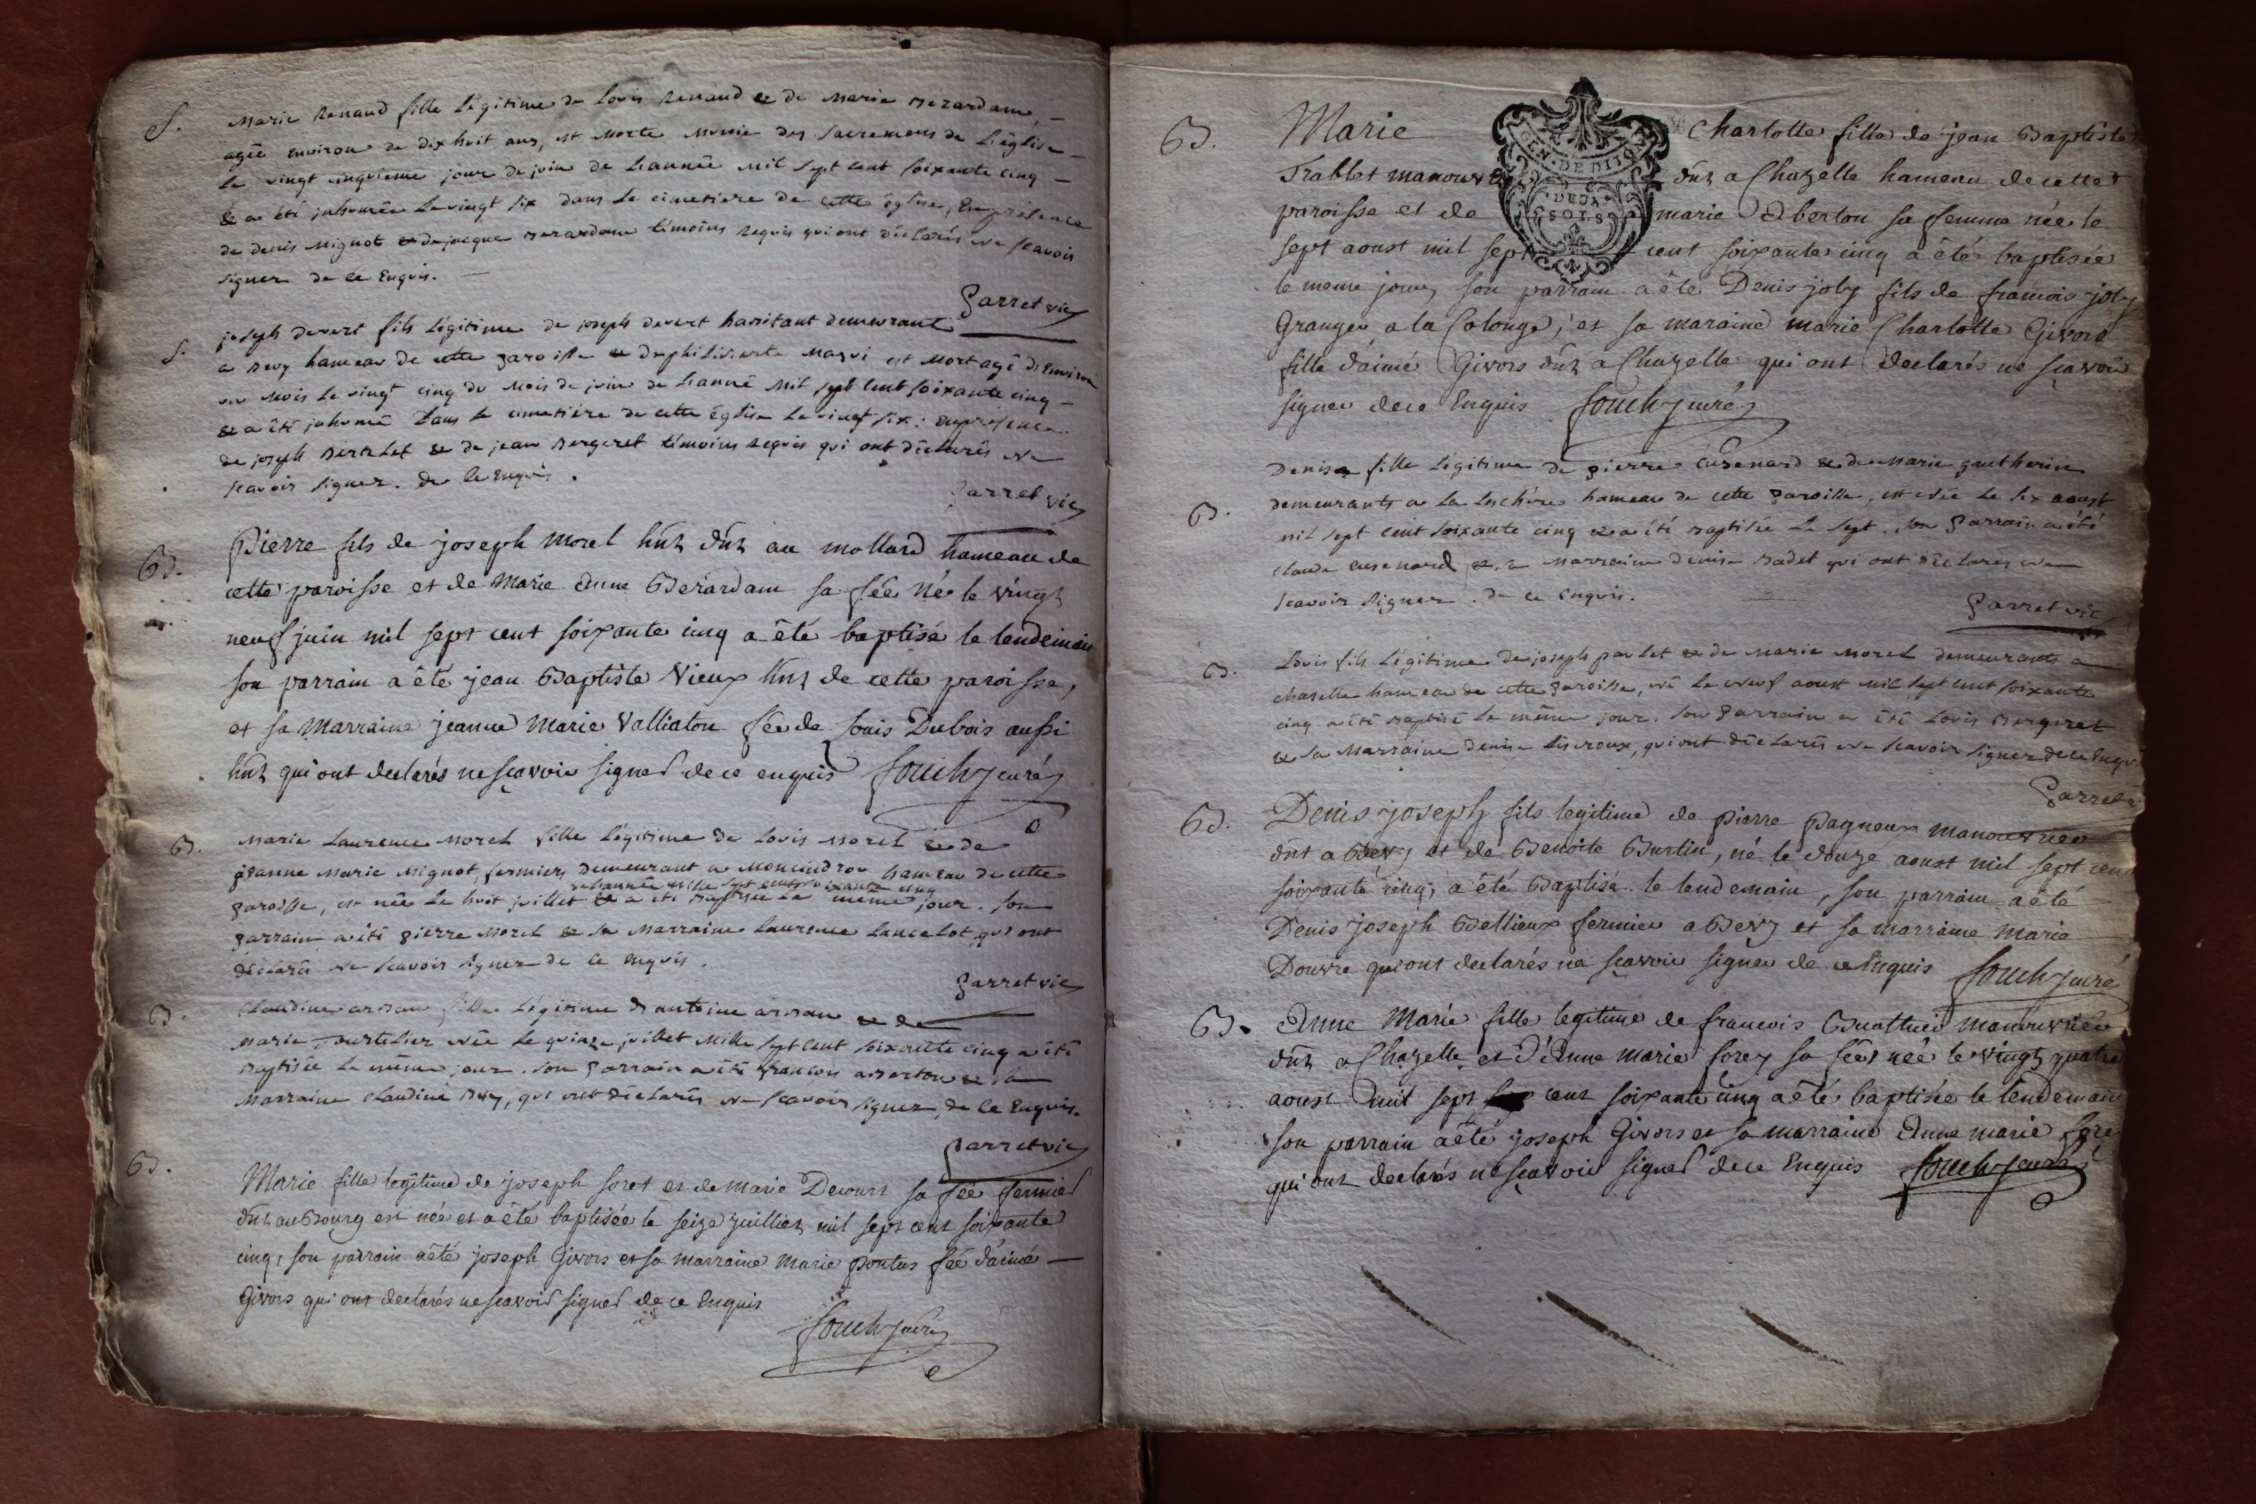 S. Marie Renaud fille légitime de Louis Renaud & de Marie Berardam, –
agée environ de dix huit ans, est morte munie des sacremens de L'église –
Le vingt cinquieme jour de juin de L'année mil sept cent soixante cinq –
& a été inhumée Le vingt six dans Le cimetiere de cette église, En présence
de Denis Mignot & de jacque Berardam témoins Requis qui ont déclarés ne scavoir
signer de ce Enquis. –
Parret vic
S. joseph devert fils Légitime de joseph devert habitant demeurant
a Bevy hameau de cette paroisse & de philiberte est Mort agé d'Environ
un Mois Le vingt cinq du Mois de juin de L'année Mil sept Cent soixante cinq –
& a été inhumé Dans Le cimetiére de cette Eglise Le vingt six : En présence
de joseph & de jean Bergeret témoins Requis qui ont déclarés ne
scavoir signer. de ce Enquis.
Parret vic
B. Pierre fils de joseph Morel hnt dnt au mollard hameau de
cette paroisse et de Marie Anne Berardam sa fée né le vingt
neuf juin mil sept cent soixante cinq a êté baptisé le lendemain
son parrain a êté jean Baptiste Vieux hnt de cette paroisse,
et sa Marraine jeanne Marie Valliaton fée de Louis Dubois aussi
hnt qui ont declarés ne sçavoir signer de ce enquis Fouchy curé
B. Marie Laurence Morel fille Légitime de Louis Morel & de
jeanne Marie Mignot, fermiers demeurant a Moncindrou hameau de cette
de L'année mille sept cents soixante cinq
paroisse, est née Le huit juillet & a été Baptisée Le même jour. son
parrain a été pierre Morel & sa Marraine Laurence Lancelot, qui ont
déclarés ne scavoir signer de ce Enquis.
Parret vic
B. Claudine fille Légitime d'antoine & de
Marie née Le quinze juillet Mille sept cent soixante cinq a été
Baptisée Le même jour. son parrain a été françois Aberton & sa
Marraine claudine Bey, qui ont déclarés ne scavoir signer de ce Enquis.
Parret vic
B. Marie fille legitime de joseph foret et de marie Decourt sa fée fermier
dnt au Bourg est née et a êté baptisée le seize juillet mil sept cent soixante
cinq, son parrain a êté joseph Givors et sa marraine Marie pontus fée d'aimé –
Givors qui ont declarés ne scavoir signer de ce Enquis
Fouchy curé
B. Marie Charlotte fille de jean Baptiste
GEN. DE DIJON
Trablet manouvrier dnt a Chazelle hameau de cette
DEUX SOLS
paroisse et de marie Aberton sa femme née le
sept aoust mil sept cent soixante cinq a êté baptisée
le meme jour, son parrain a êté Denis joly fils de francois joly
Granger a la Colonge; et sa maraine marie Charlotte Givors
fille d'aimé Givors dnt a Chazelle qui ont declarés ne sçavoir
signer de ce Enquis Fouchy curé
B. Denise fille Légitime de pierre Cusenard & de Marie gautherin
demeurants a La Lechere hameau de cette paroisse, est née Le six aoust
mil sept cent soixante cinq & a été Baptisée Le sept. son parrain a été
claude cusenard, & sa Marraine denise Badet qui ont déclarés ne
scavoir signer. de ce Enquis.
Parret vic
B. Louis fils Légitime de joseph paulet & de Marie Morel demeurants a
chaselle hameau de cette paroisse, né Le neuf aoust mil sept cent soixante
cinq a été Baptisé Le même jour. son parrain a été Louis Bergeret
& sa Marraine denise, qui ont déclarés ne scavoir signer de ce Enquis
Parret
B. Denis joseph fils legitime de pierre Pagneux manouvrier
dnt a Bevy et de Benoite Burtin, né le douze aoust mil sept cent
soixante cinq, a êté Baptisé le lendemain, son parrain a êté
Denis joseph Bellieux fermier a Bevy et sa marraine Marie
Douvre qui ont declarés ne sçavoir signer de ce Enquis Fouchy curé
B. Anne Marie fille legitime de francois manouvrier
dnt a Chazelle et d'Anne marie forey sa fée née le vingt quatre
aoust mil sept cent soixante cinq a êté baptisée le lendemain
son parrain a êté joseph Givors et sa marraine Anne marie
qui ont declarés ne sçavoir signer de ce Enquis Fouchy curé